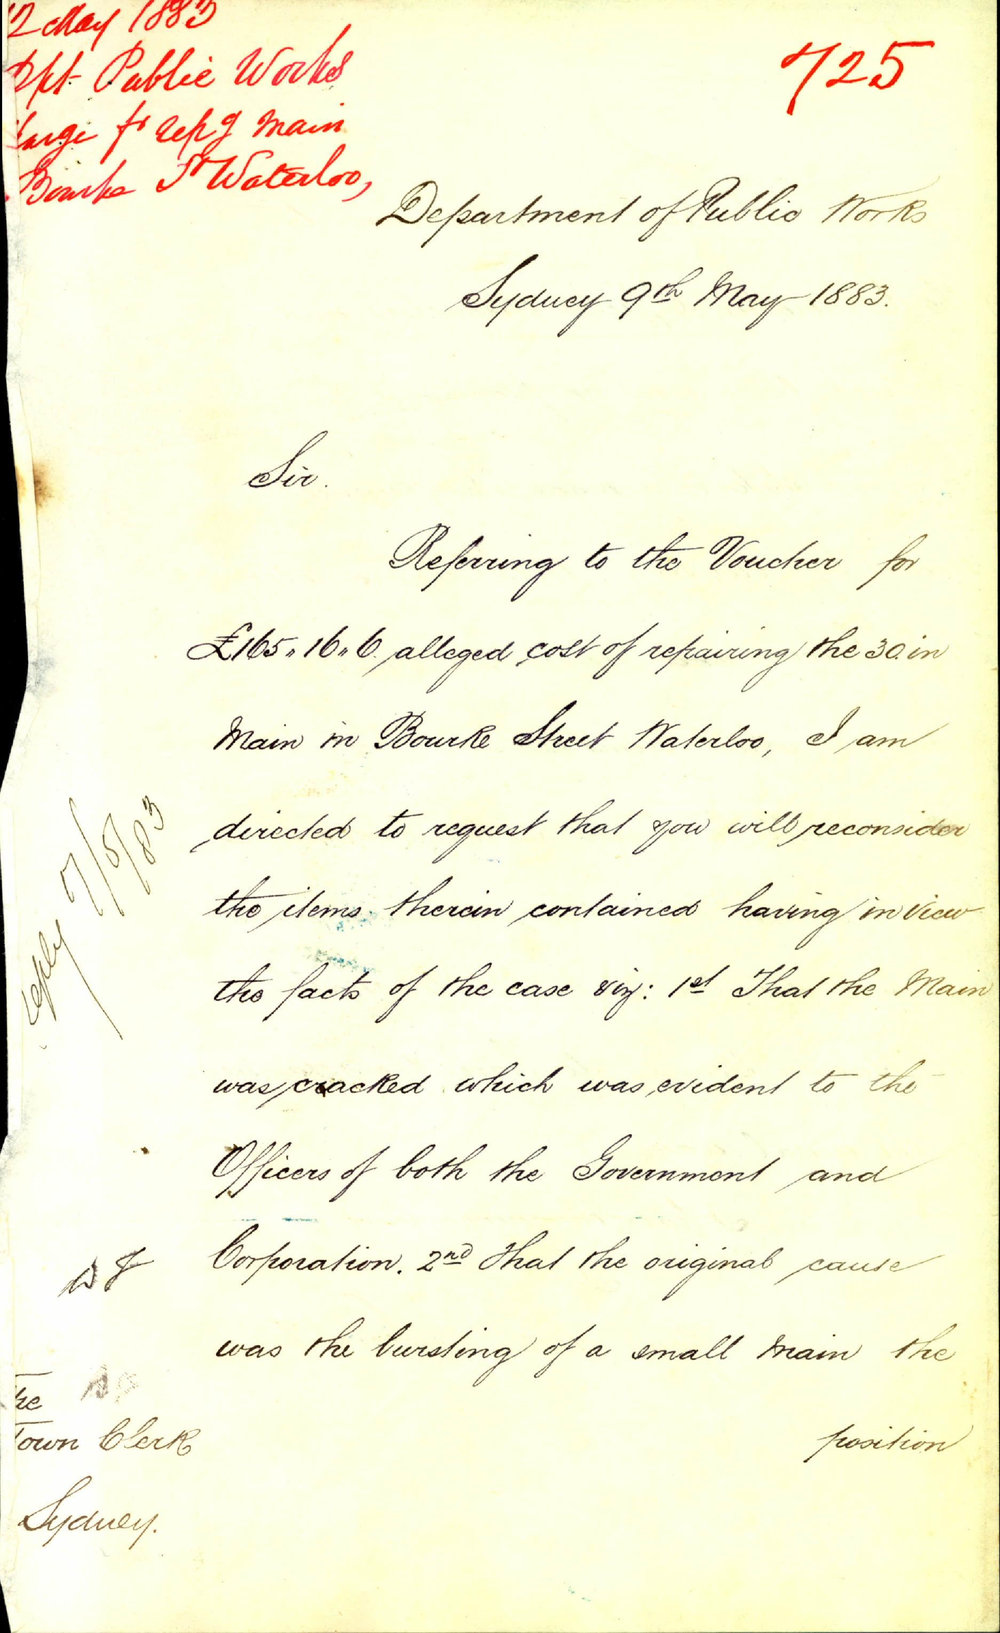 2 May 1883
Dpt Public Works
arge fr repg Main
Bourke St Waterloo,
725
Department of Public Works
Sydney 9th May 1883.
Sir.
Referring to the Voucher for
£165„16„6 alleged cost of repairing the 30 in
Main in Bourke Street Waterloo, I am
directed to request that you will reconsider
the items therein contained having in view
the facts of the case viz: 1st That the Main
was cracked which was evident to the
Officers of both the Government and
Corporation. 2nd That the original cause
was the bursting of a small main the
position
reply 17/5/83
The
Town Clerk
Sydney.